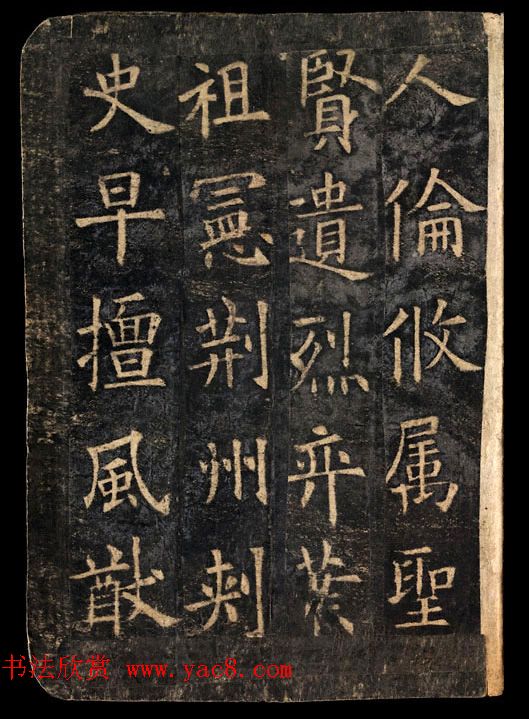 人倫攸属聖
賢遺烈弈葉
祖憲荆州刺
史早擅風猷
书法欣赏 www.yac8.com